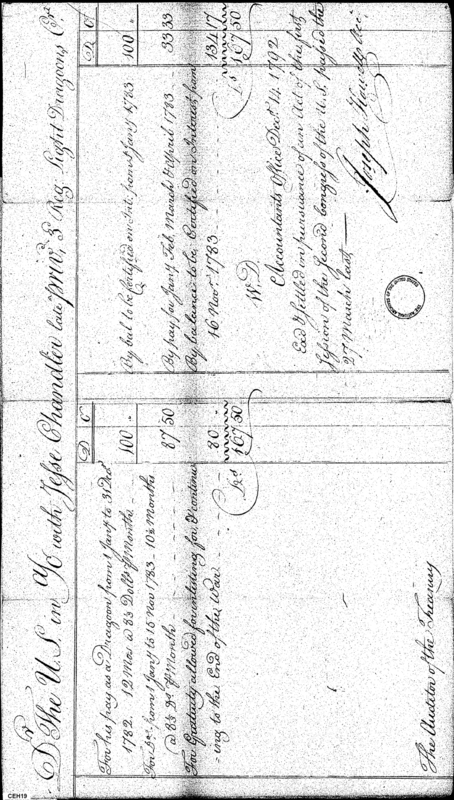 Dr The U.S. in a/c with Jesse Chandler late priv. 3 Reg. Light Dragoons Cr
D C
For his pay as a Dragoon from 1 Jany to 31 Decr
1782. 12 Mos a 8⅓ Dolls ⅌ Month 100 "
For Do from 1 Jany to 16 Nov 1783 - 10½ Months
a 8⅓ Ds ⅌ Month 87 50
For Gratuity allowed for inlisting for, & continu-
=ing to the End of the War 80
Ds 267.50
D C
By bal to be Certified on Inte from 1 Jany 1783 100 "
By pay for Jany Feb March & April 1783 33 33
By balance to be Certified on Interest from
16 Novr 1783 134.17
Ds 267.50
W.D.
Accountants Office Decr 14. 1792
Exd & settled in pursuance of an Act of the first
Session of the Second Congress of the U.S. passed the
27 March last,—
Joseph Howell
The Auditor of the Treasury
CEH19